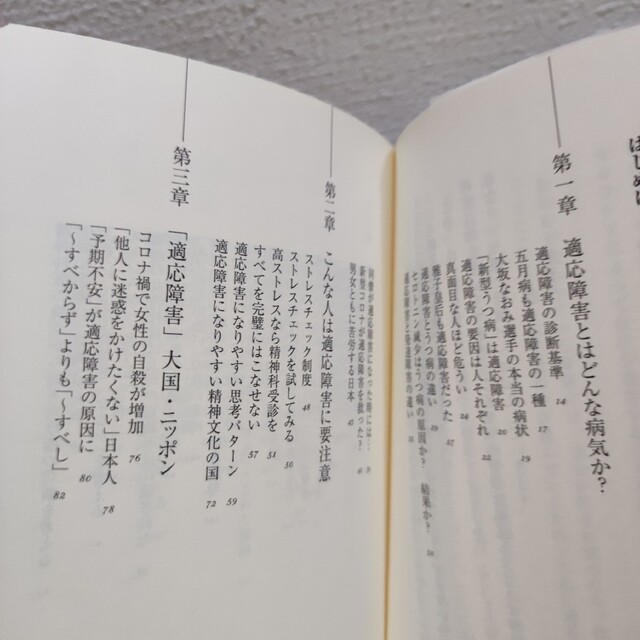 はじめに
第一章 適応障害とはどんな病気か?
適応障害の診断基準 14
五月病も適応障害の一種 17
大坂なおみ選手の本当の病状 19
「新型うつ病」は適応障害 20
適応障害の要因は人それぞれ 22
真面目な人ほど危うい
雅子皇后も適応障害だった 27
適応障害とうつ病の違い 29
セロトニン減少はうつ病の原因か? 結果か?
適応障害と発達障害の違い
同僚が適応障害になった時には…
新型コロナが適応障害を救った?
男女ともに苦労する日本
第二章 こんな人は適応障害に要注意
ストレスチェック制度 48
ストレスチェックを試してみる 50
高ストレスなら精神科受診を 51
すべてを完璧にはこなせない 57
適応障害になりやすい思考パターン 59
適応障害になりやすい精神文化の国 72
第三章 「適応障害」大国・ニッポン
コロナ禍で女性の自殺が増加 76
「他人に迷惑をかけたくない」日本人 78
「予期不安」が適応障害の原因に 80
「〜すべからず」よりも「〜すべし」 82